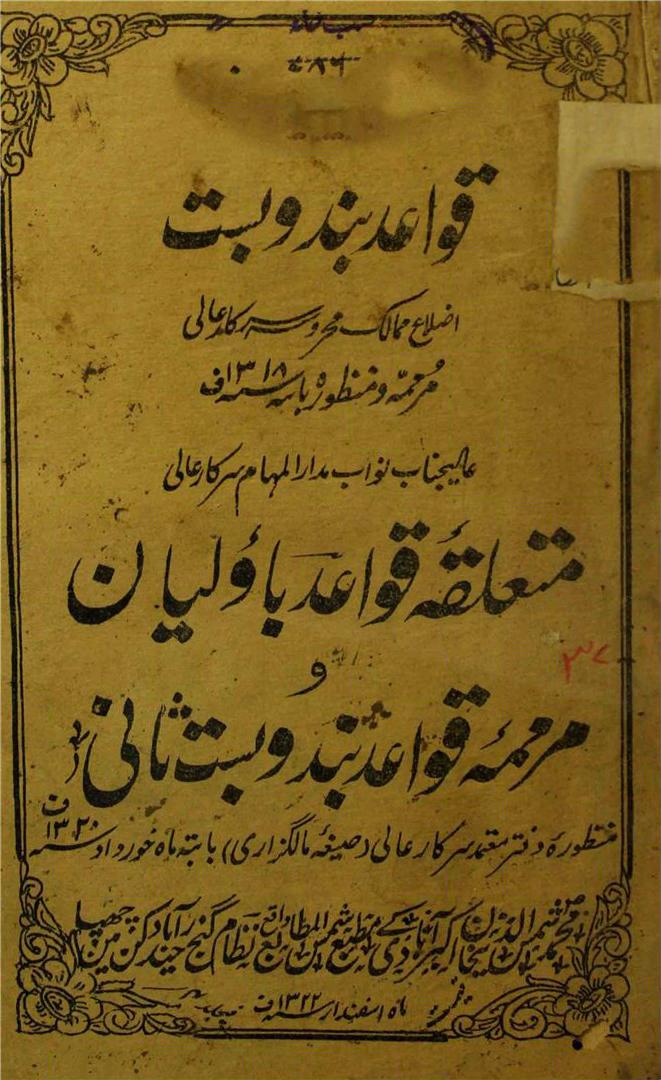 ۷۸۶
قواعد بندوبست
اضلاع ممالک محروسہ سرکار عالی
مرممہ و منظورہ بابتہ سنہ ۱۳۱۸ ف
عالیجناب نواب مدار المہام سرکار عالی
متعلقۂ قواعد باؤلیان
و
مرممۂ قواعد بندوبست ثانی
منظورہ دفتر معتمد سرکار عالی (صیغۂ مالگزاری) بابتہ ماہ خورداد سنہ ۱۳۲۰ ف
محمد شمس الدین اکبرآبادی کے مطبع شمس المطابع واقع نظام گنج حیدرآباد دکن مین چھپا
ماہ اسفندار سنہ ۱۳۲۲ ف
۳۷